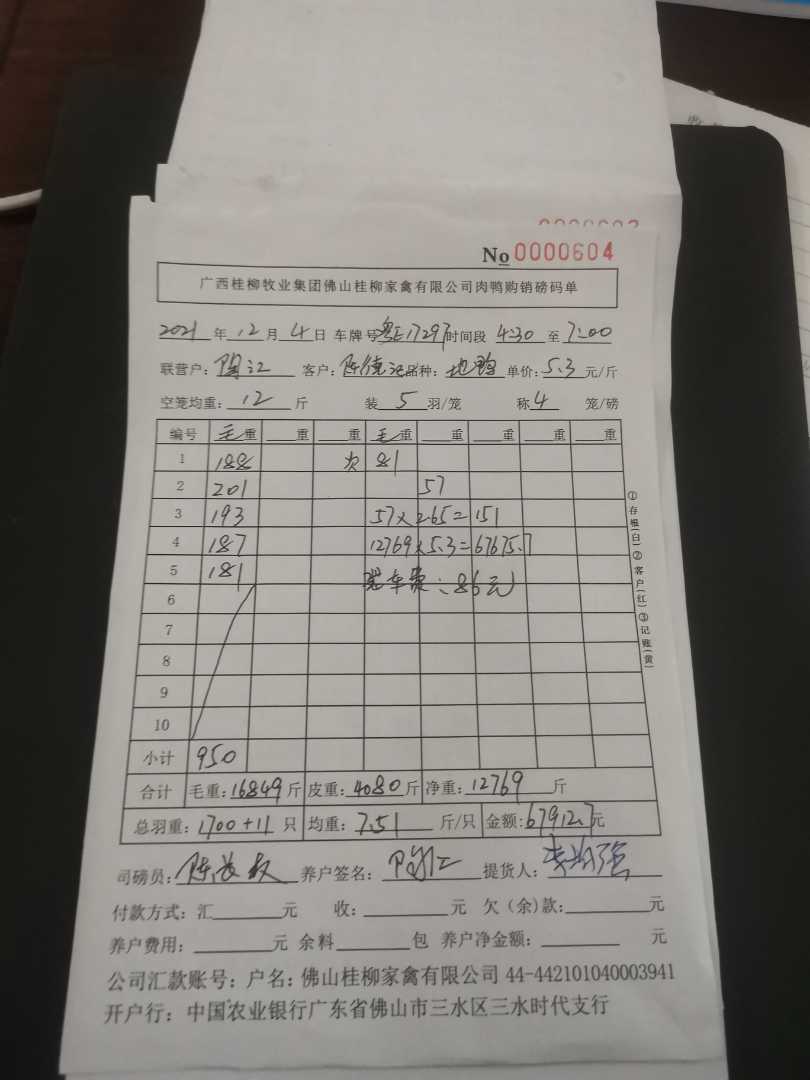 No 0000604
广西桂柳牧业集团佛山桂柳家禽有限公司肉鸭购销磅码单
2021年12月4日 车牌号粤E17297时间段 4:30 至 7:00
联营户：陶江 客户：陈德 品种：地鸭 单价：5.3 元/斤
空笼均重：12 斤 装 5 羽/笼 称 4 笼/磅
编号 毛重 重 重 毛重 重 重 重 重
1 188 次 81
2 201 57
3 193 57×2.65=151
4 187 12769×5.3=67675.7
5 181 车费：86元
6
7
8
9
10
小计 950
合计 毛重：16849斤 皮重：4080斤 净重：12769斤
总羽重：1700+11 只 均重：7.51 斤/只 金额：67912.7元
司磅员：陈 养户签名：陶江 提货人：李
付款方式：汇 元 收： 元 欠（余）款： 元
养户费用： 元 余料 包 养户净金额： 元
公司汇款账号：户名：佛山桂柳家禽有限公司 44-442101040003941
开户行：中国农业银行广东省佛山市三水区三水时代支行
①存根(白)②客户(红)③记账(黄)